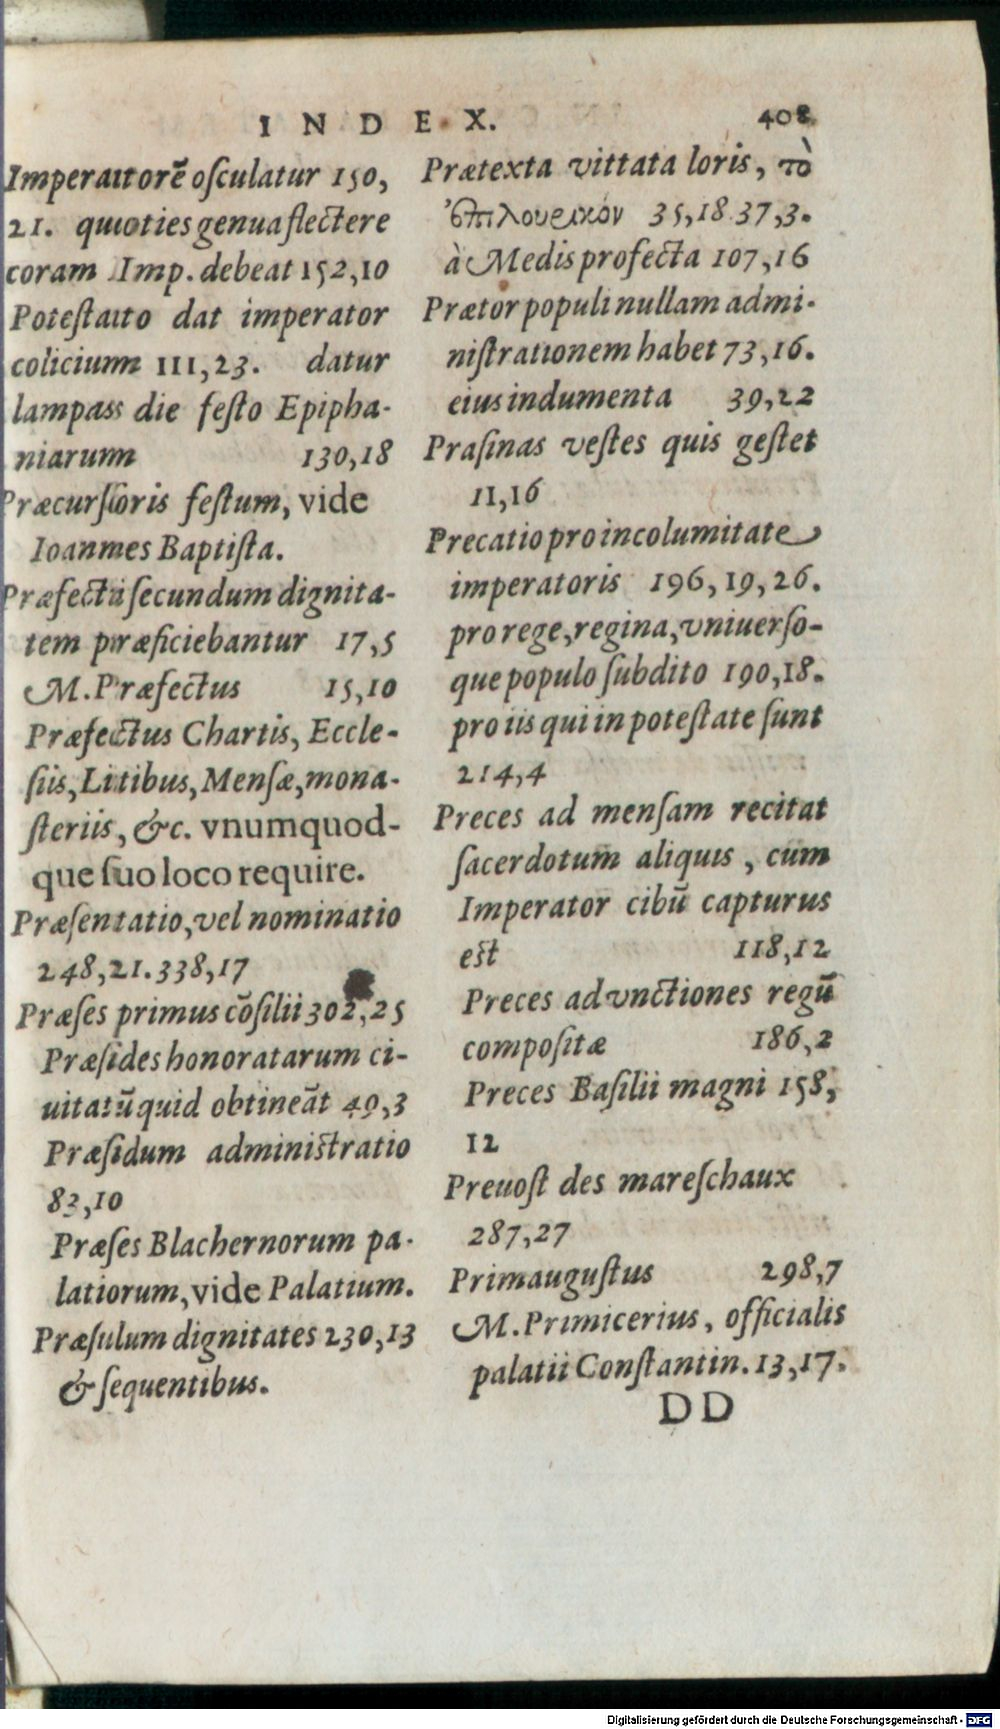 INDEX. 408
Imperatorẽ oſculatur 150,
21. quoties genua flectere
coram Imp. debeat 152,10
Poteſtato dat imperator
colicium 111,23. datur
lampas die feſto Epipha-
niarum 130,18
Præcurſoris feſtum, vide
Ioannes Baptiſta.
Præfecti ſecundum dignita-
tem præficiebantur 17,5
M. Præfectus 15,10
Præfectus Chartis, Eccle-
ſiis, Litibus, Menſæ, mona-
ſteriis, &c. vnumquod-
que ſuo loco require.
Præſentatio, vel nominatio
248,21. 338,17
Præſes primus cõſilii 302,25
Præſides honoratarum ci-
uitatũ quid obtineãt 49,3
Præſidum adminiſtratio
83,10
Præſes Blachernorum pa-
latiorum, vide Palatium.
Præſulum dignitates 230,13
& ſequentibus.
Prætexta vittata loris, τὸ
ἐπιλουρικόν 35,18. 37,3.
à Medis profecta 107,16
Prætor populi nullam admi-
niſtrationem habet 73,16.
eius indumenta 39,22
Praſinas veſtes quis geſtet
11,16
Precatio pro incolumitate
imperatoris 196,19,26.
pro rege, regina, vniuerſo-
que populo ſubdito 190,18.
pro iis qui in poteſtate ſunt
214,4
Preces ad menſam recitat
ſacerdotum aliquis, cum
Imperator cibũ capturus
eſt 118,12
Preces ad vnctiones regũ
compoſitæ 186,2
Preces Baſilii magni 158,
12
Preuoſt des mareſchaux
287,27
Primauguſtus 298,7
M. Primicerius, officialis
palatii Conſtantin. 13,17.
DD
Digitalisierung gefördert durch die Deutsche Forschungsgemeinschaft - DFG